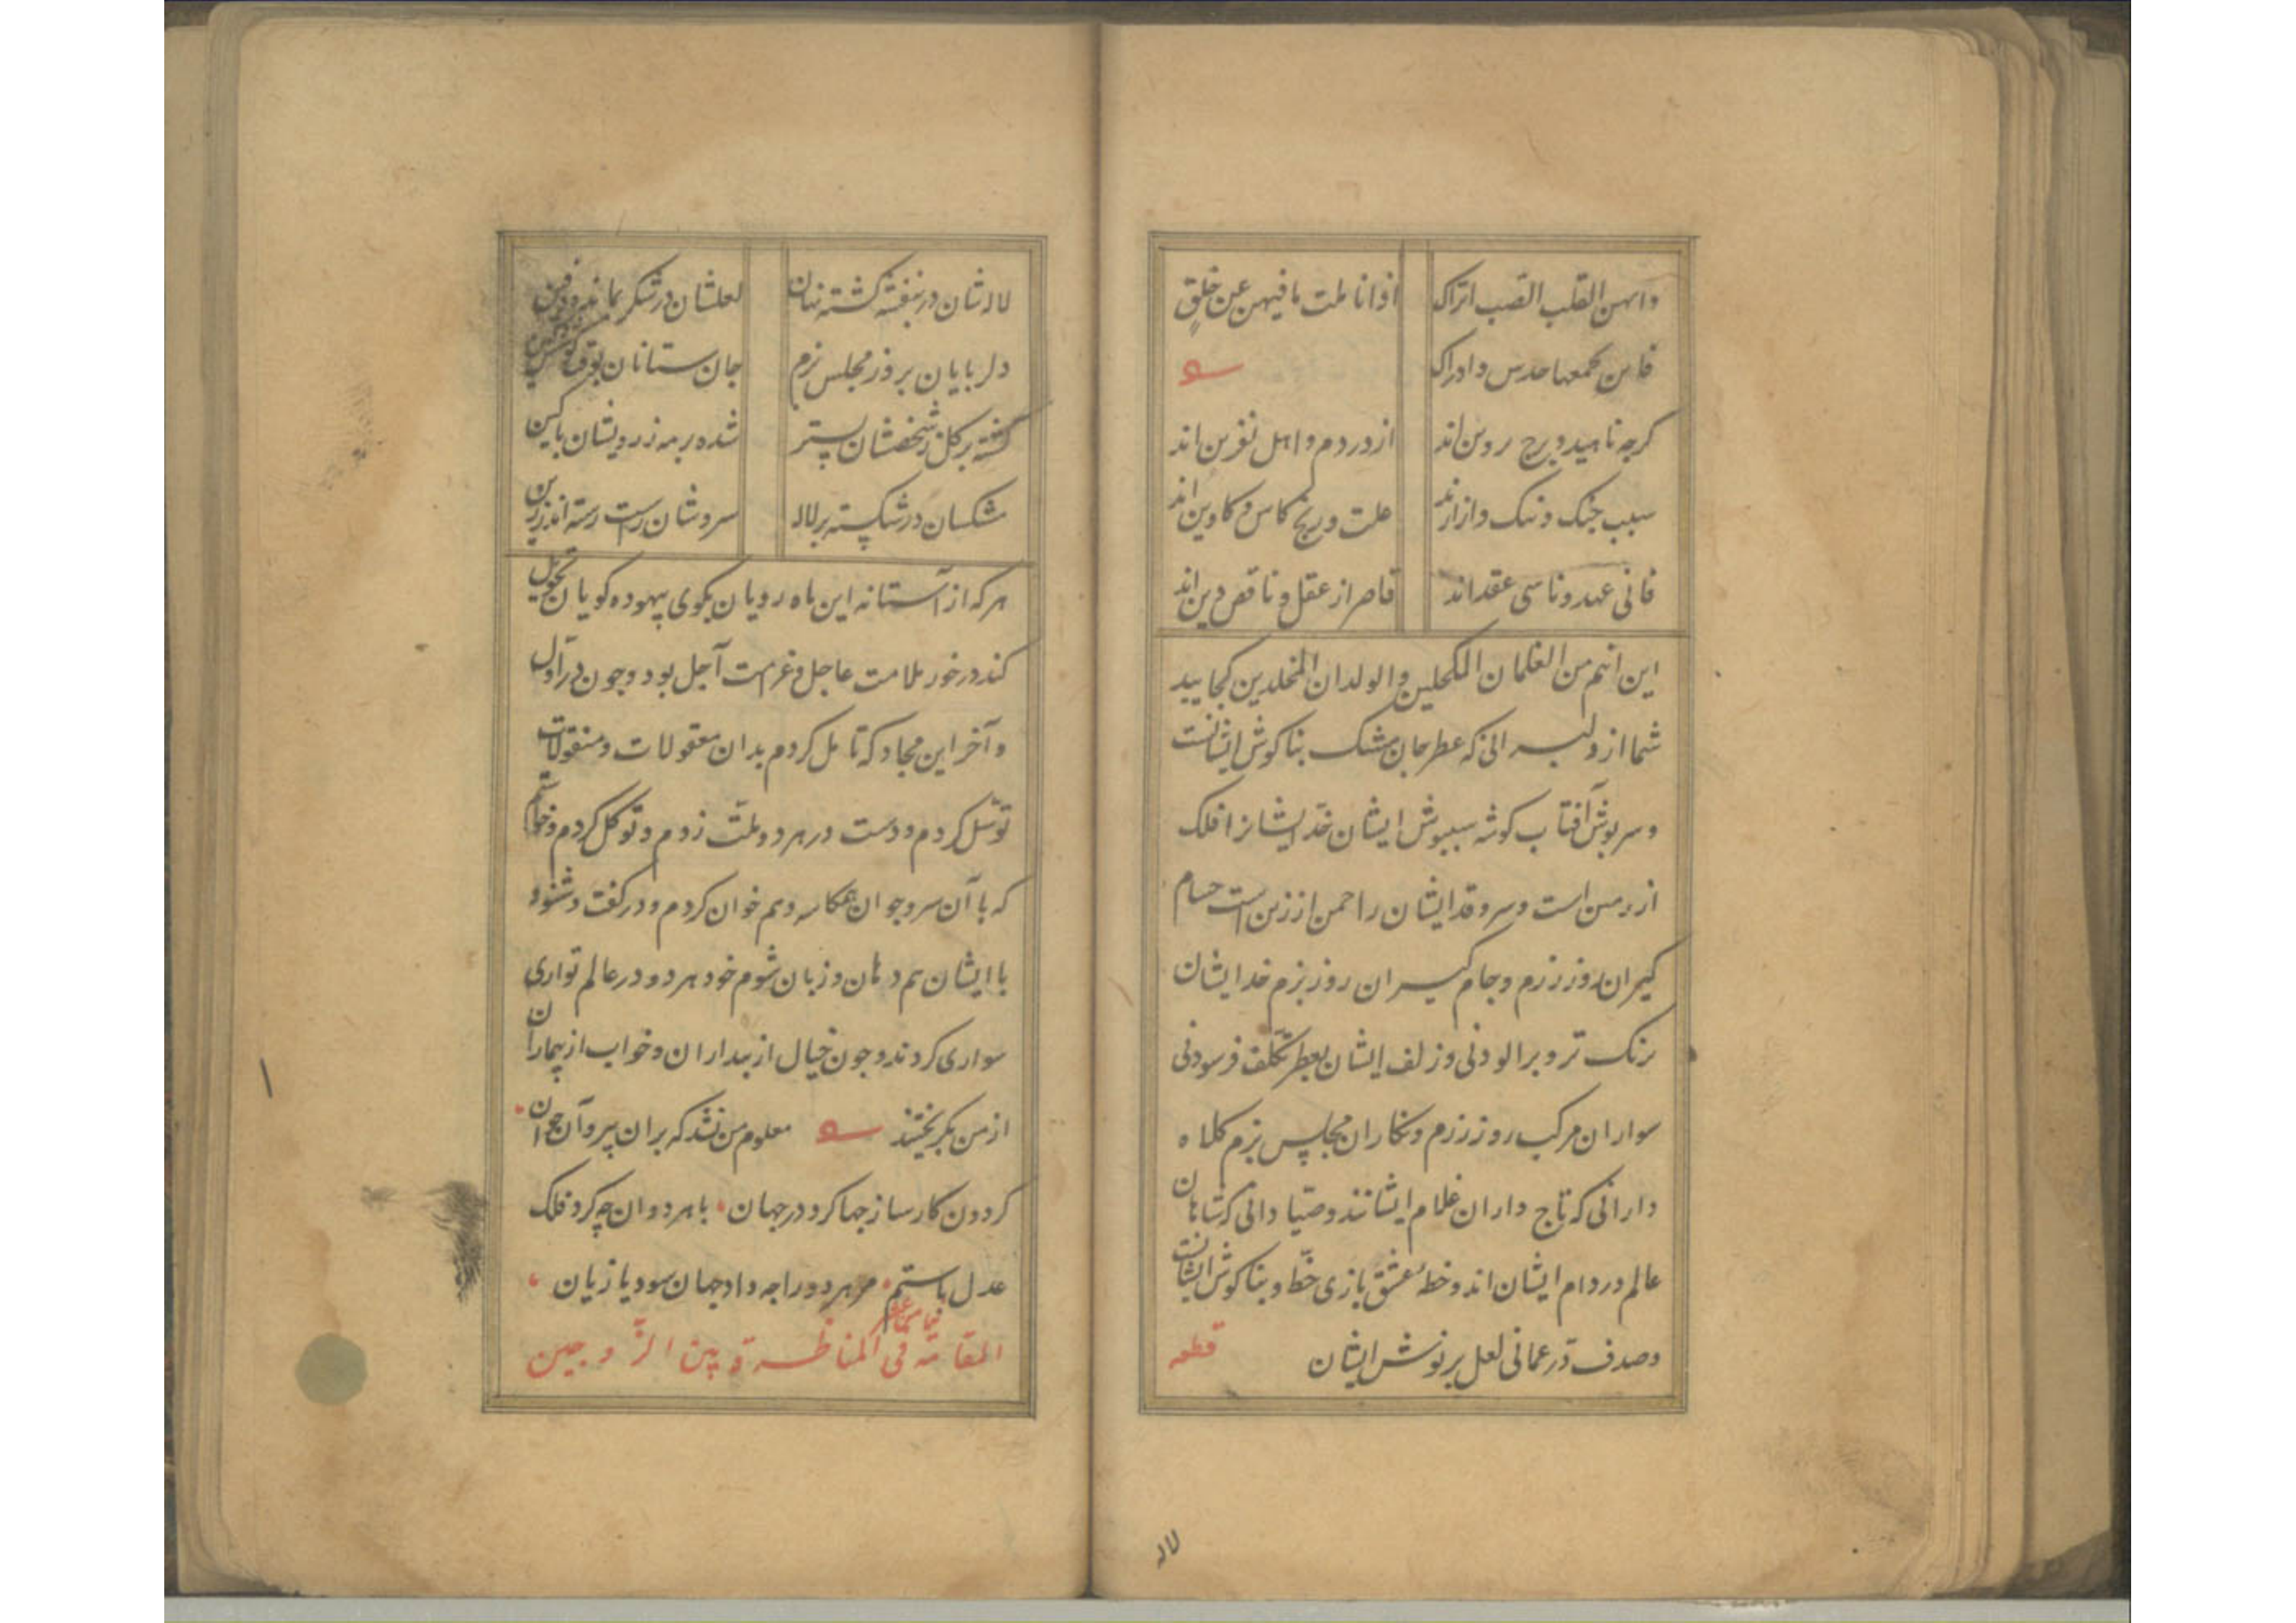 وانهن القلب القصب اتراک اذا ناطت ما فیهن عن خلق
فامن کمعها حدس وادراک
کرچه ناهید و برج پروین اند از در دم و اهل نفرین اند
سبب جنک و ننک و ازارند علت و رنج کاس و کاوین اند
فانی عهد و ناسی عقداند قاصر از عقل و ناقص دین اند
این انتم من الغلمان المکحلین والولدان المخلدین کجایید
شما از دلبرانی که عطر جان مشک بناکوش ایشانست
و سرپوش آفتاب کوشه شبپوش ایشان خد ایشانرا فلک
از رمن است و سرو قد ایشان را چمن از زین است حسام
کیران روز رزم و جام کیران روز بزم خد ایشان
برنک تزویر الودنی و زلف ایشان بعطر تکلف فرسودنی
سواران مرکب روز رزم و نکاران مجلس بزم کلاه
دارانی که تاج داران غلام ایشانند و صیادانی که شاهان
عالم در دام ایشان اند و خط عشق بازی خط و بناکوش ایشانست
و صدف در عمانی لعل پر نوش ایشان قطعه
لاله
لاله شان در بنفشه کشته نهان لعلشان در شکر بمانده دفین
دلربایان بروز مجلس بزم جان ستانان بوقت کوشش کین
کشته بر کل ز شخصشان بستر شده بر مه ز رویشان بالین
مشکسان در شکسته بر لاله سروشان راست رسته اندر زین
هر که از آستانه این ماه رویان بکوی بیهوده کویان تحویل
کند در خور ملامت عاجل و غرامت آجل بود و چون در اول
و آخر این مجادله تامل کردم بدان معقولات و منقولات
توسل کردم و دست در هر دو ملت زدم و توکل کردم و خواستم
که با آن سر و جوان همکاسه و هم خوان کردم و در کفت و شنود
با ایشان هم دهان و زبان شوم خود هر دو در عالم تواری
سواری کردند و چون خیال از بیداران و خواب از بیماران
از من بکریختند معلوم من نشد که بران پیر و آن جوان
کردون کارساز جها کرد در جهان با هر دوان چه کرد فلک
عدل یا ستم مر هر دو را چه داد جهان سود یا زیان
المقامة فی المناظرة بین الزوجین